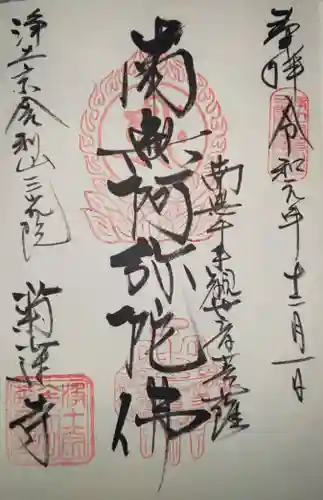 奉拝
令和元年十二月一日
南無千手観世音菩薩
南無阿弥陀佛
浄土宗舎利山三光院
菊蓮寺